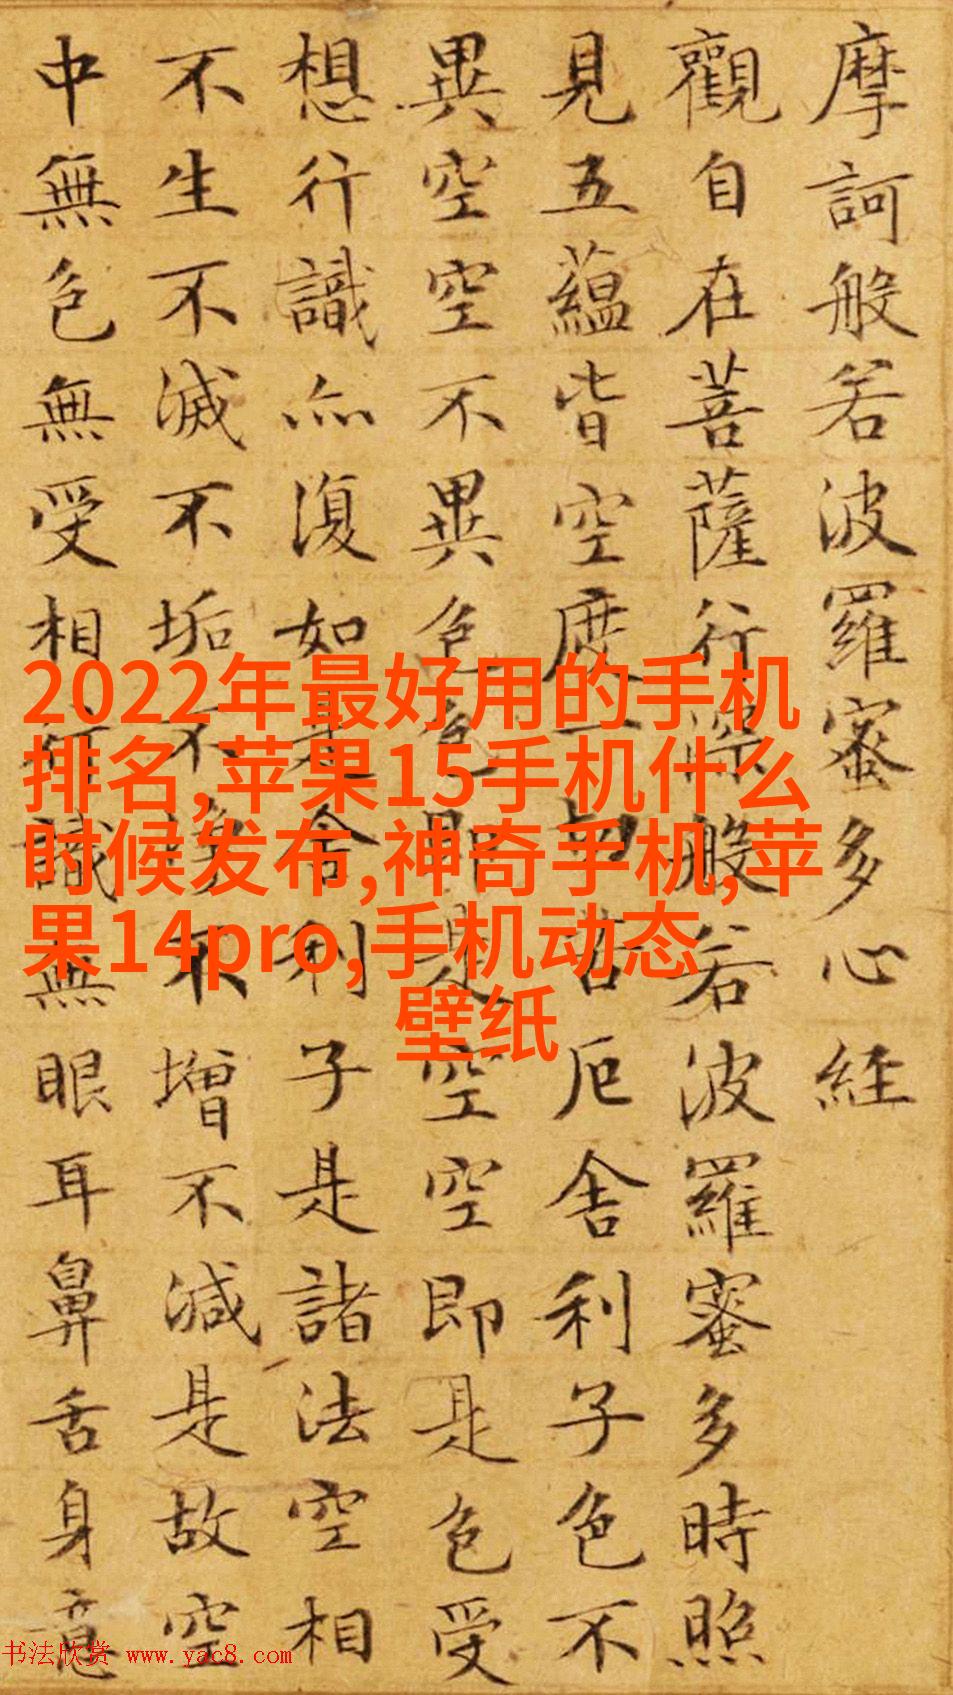 摩訶般若波羅蜜多心経
觀自在菩薩行深般若波羅蜜多時照
見五蘊皆空度一切苦厄舍利子色不
異空空不異色色即是空空即是色受
想行識亦復如是舍利子是諸法空相
不生不滅不垢不淨不增不減是故空
中無色無受想行識無眼耳鼻舌身意
2022年最好用的手机
排名,苹果15手机什么
时候发布,神奇手机,苹
果14pro,手机动态
壁纸
书法欣赏 www.yac8.com